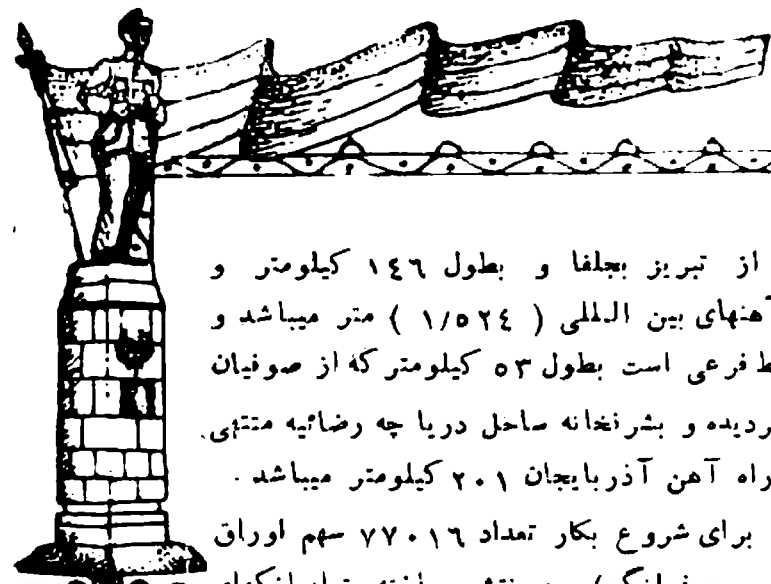 از تبریز بجلفا و بطول ۱٤٦ کیلومتر و
آهنهای بین المللی ( ۱/٥۲٤ ) متر میباشد و
ط فرعی است بطول ٥۳ کیلومتر که از صوفیان
ردیده و بشرنخانه ساحل دریا چه رضائیه منتهی
راه آهن آذربایجان ۲۰۱ کیلومتر میباشد .
برای شروع بکار تعداد ۷۷۰۱٦ سهم اوراق